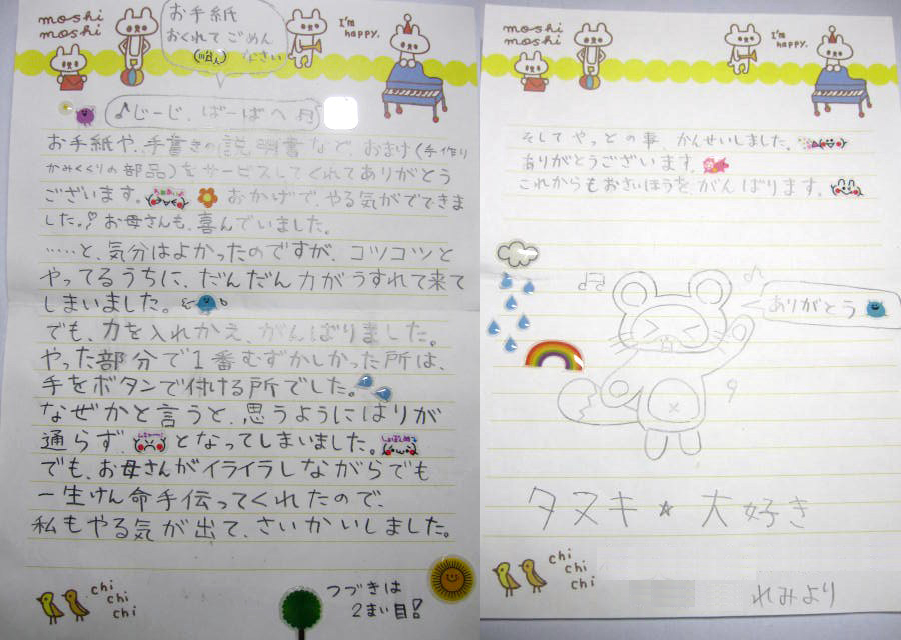 moshi
moshi
お手紙
おくれてごめん
なさい
I'm
happy.
♪じーじ、ばーばへ♬
お手紙や、手書きの説明書など、おまけ(手作り
かみくくりの部品)をサービスしてくれてありがとう
ございます。おかげで、やる気がでできま
した。!お母さんも、喜んでいました。
……と、気分はよかったのですが、コツコツと
やってるうちに、だんだん力がうすれて来て
しまいました。
でも、力を入れかえ、がんばりました。
やった部分で1番むずかしかった所は、
手をボタンで付ける所でした。
なぜかと言うと、思うようにはりが
通らず、となってしまいました。
でも、お母さんがイライラしながらでも
一生けん命手伝ってくれたので、
私もやる気が出て、さいかいしました。
chi
chi
chi
つづきは
2まい目!
moshi
moshi
I'm
happy.
そしてやっとの事、かんせいしました。
ありがとうございます。
これからもおさいほうをがんばります。
ありがとう
タヌキ☆大好き
chi
chi
chi
れみより